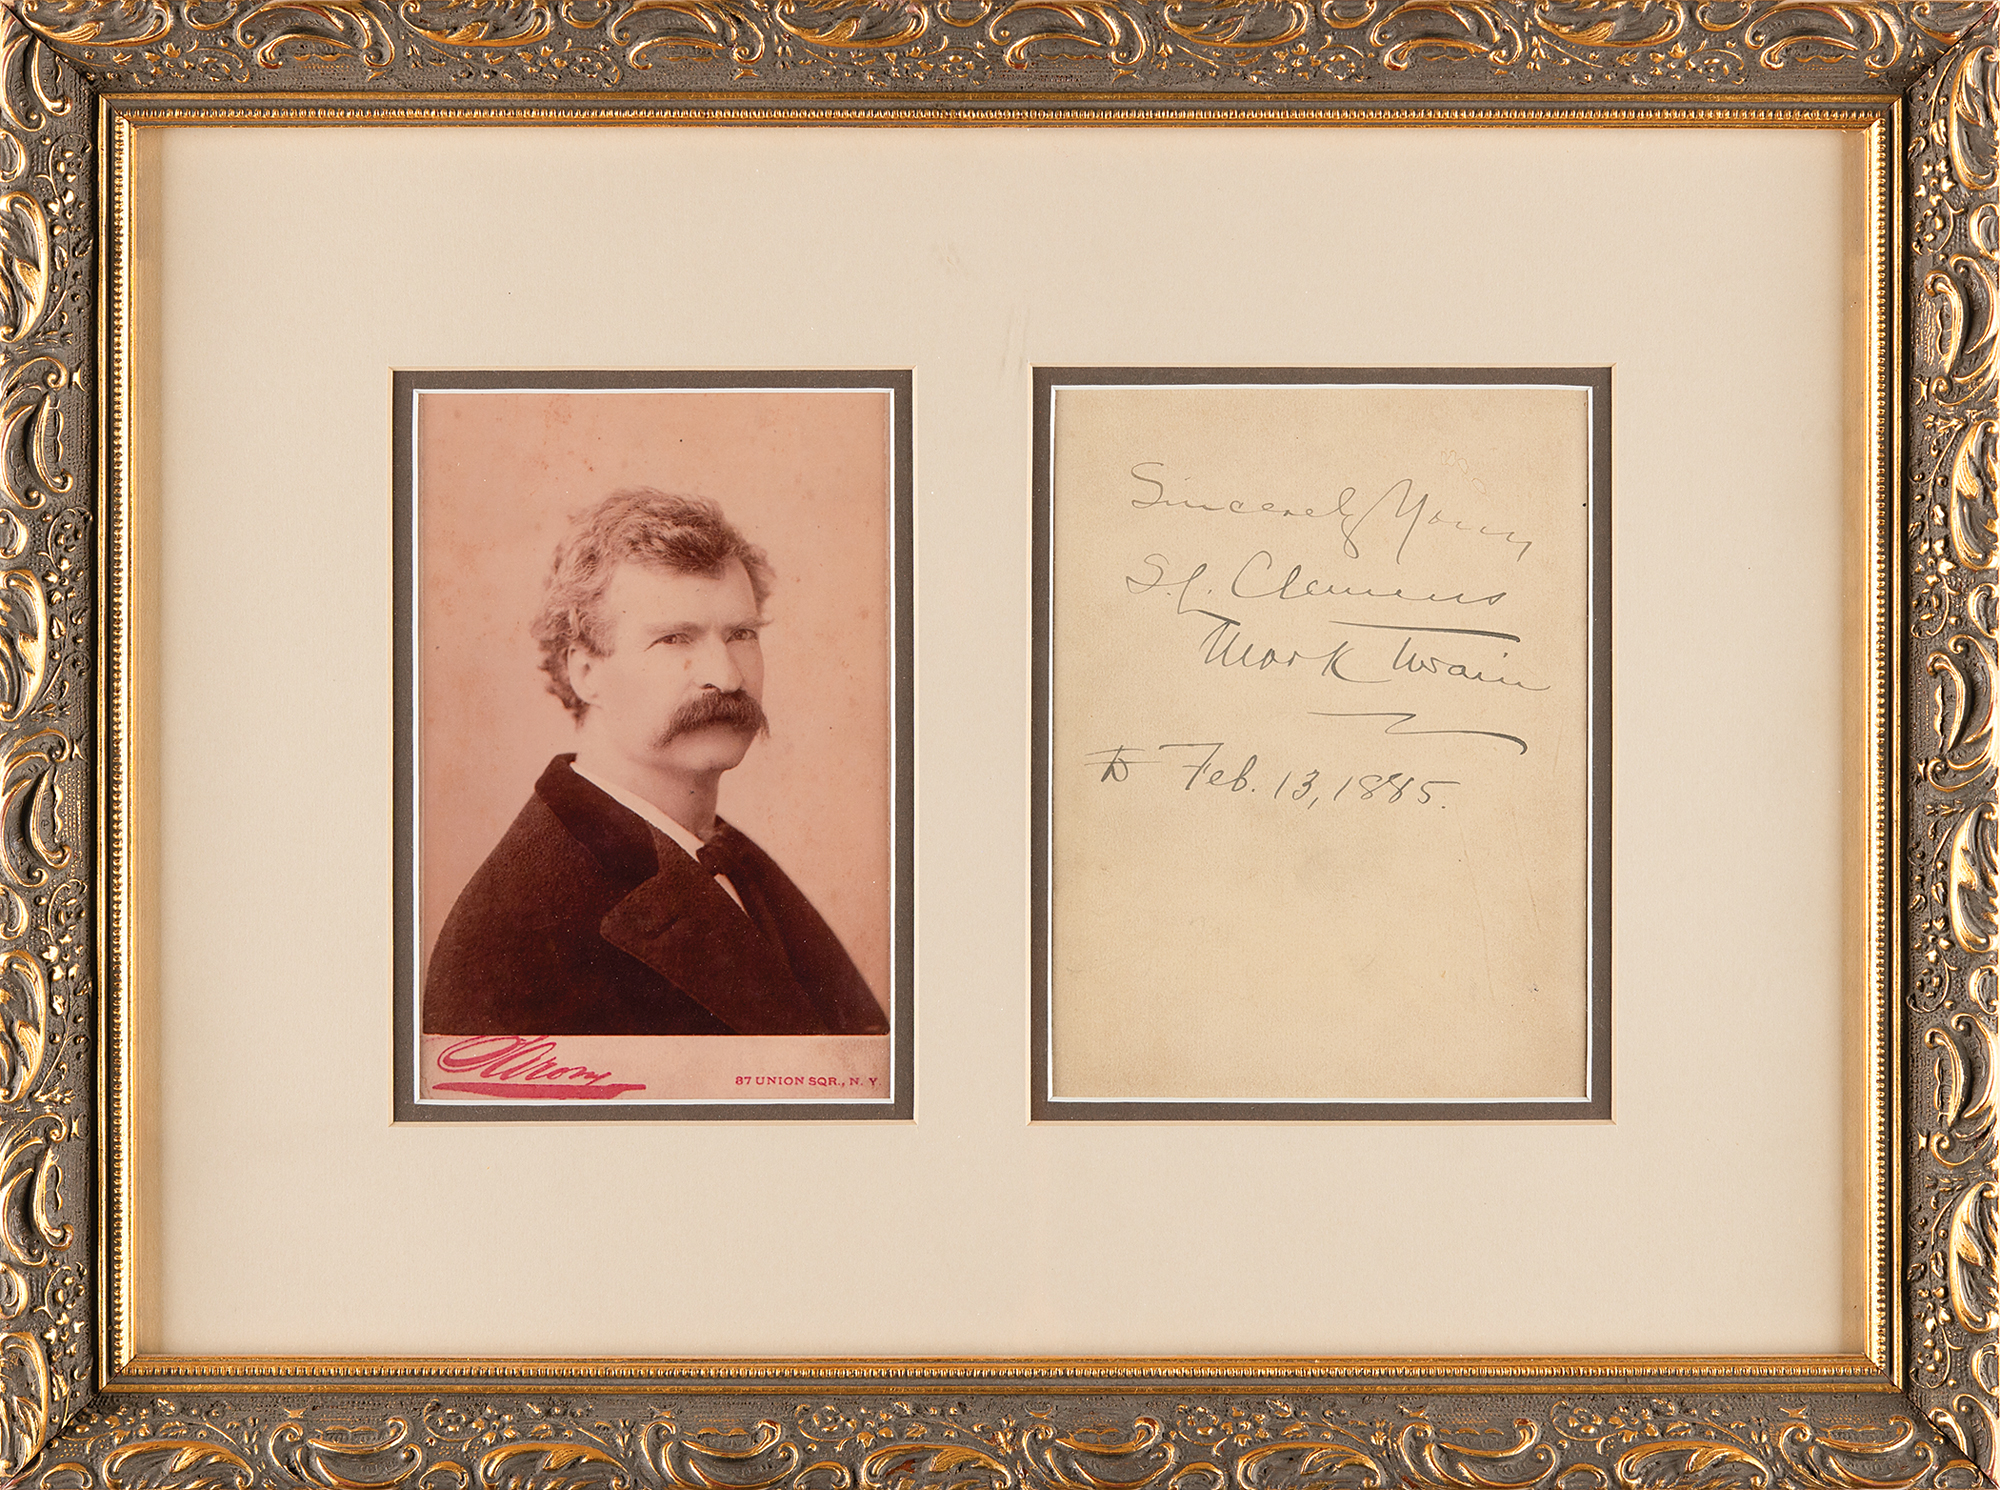 Sarony
87 UNION SQR., N. Y.
Sincerely Yours
S.L. Clemens
Mark Twain
Feb. 13, 1885.